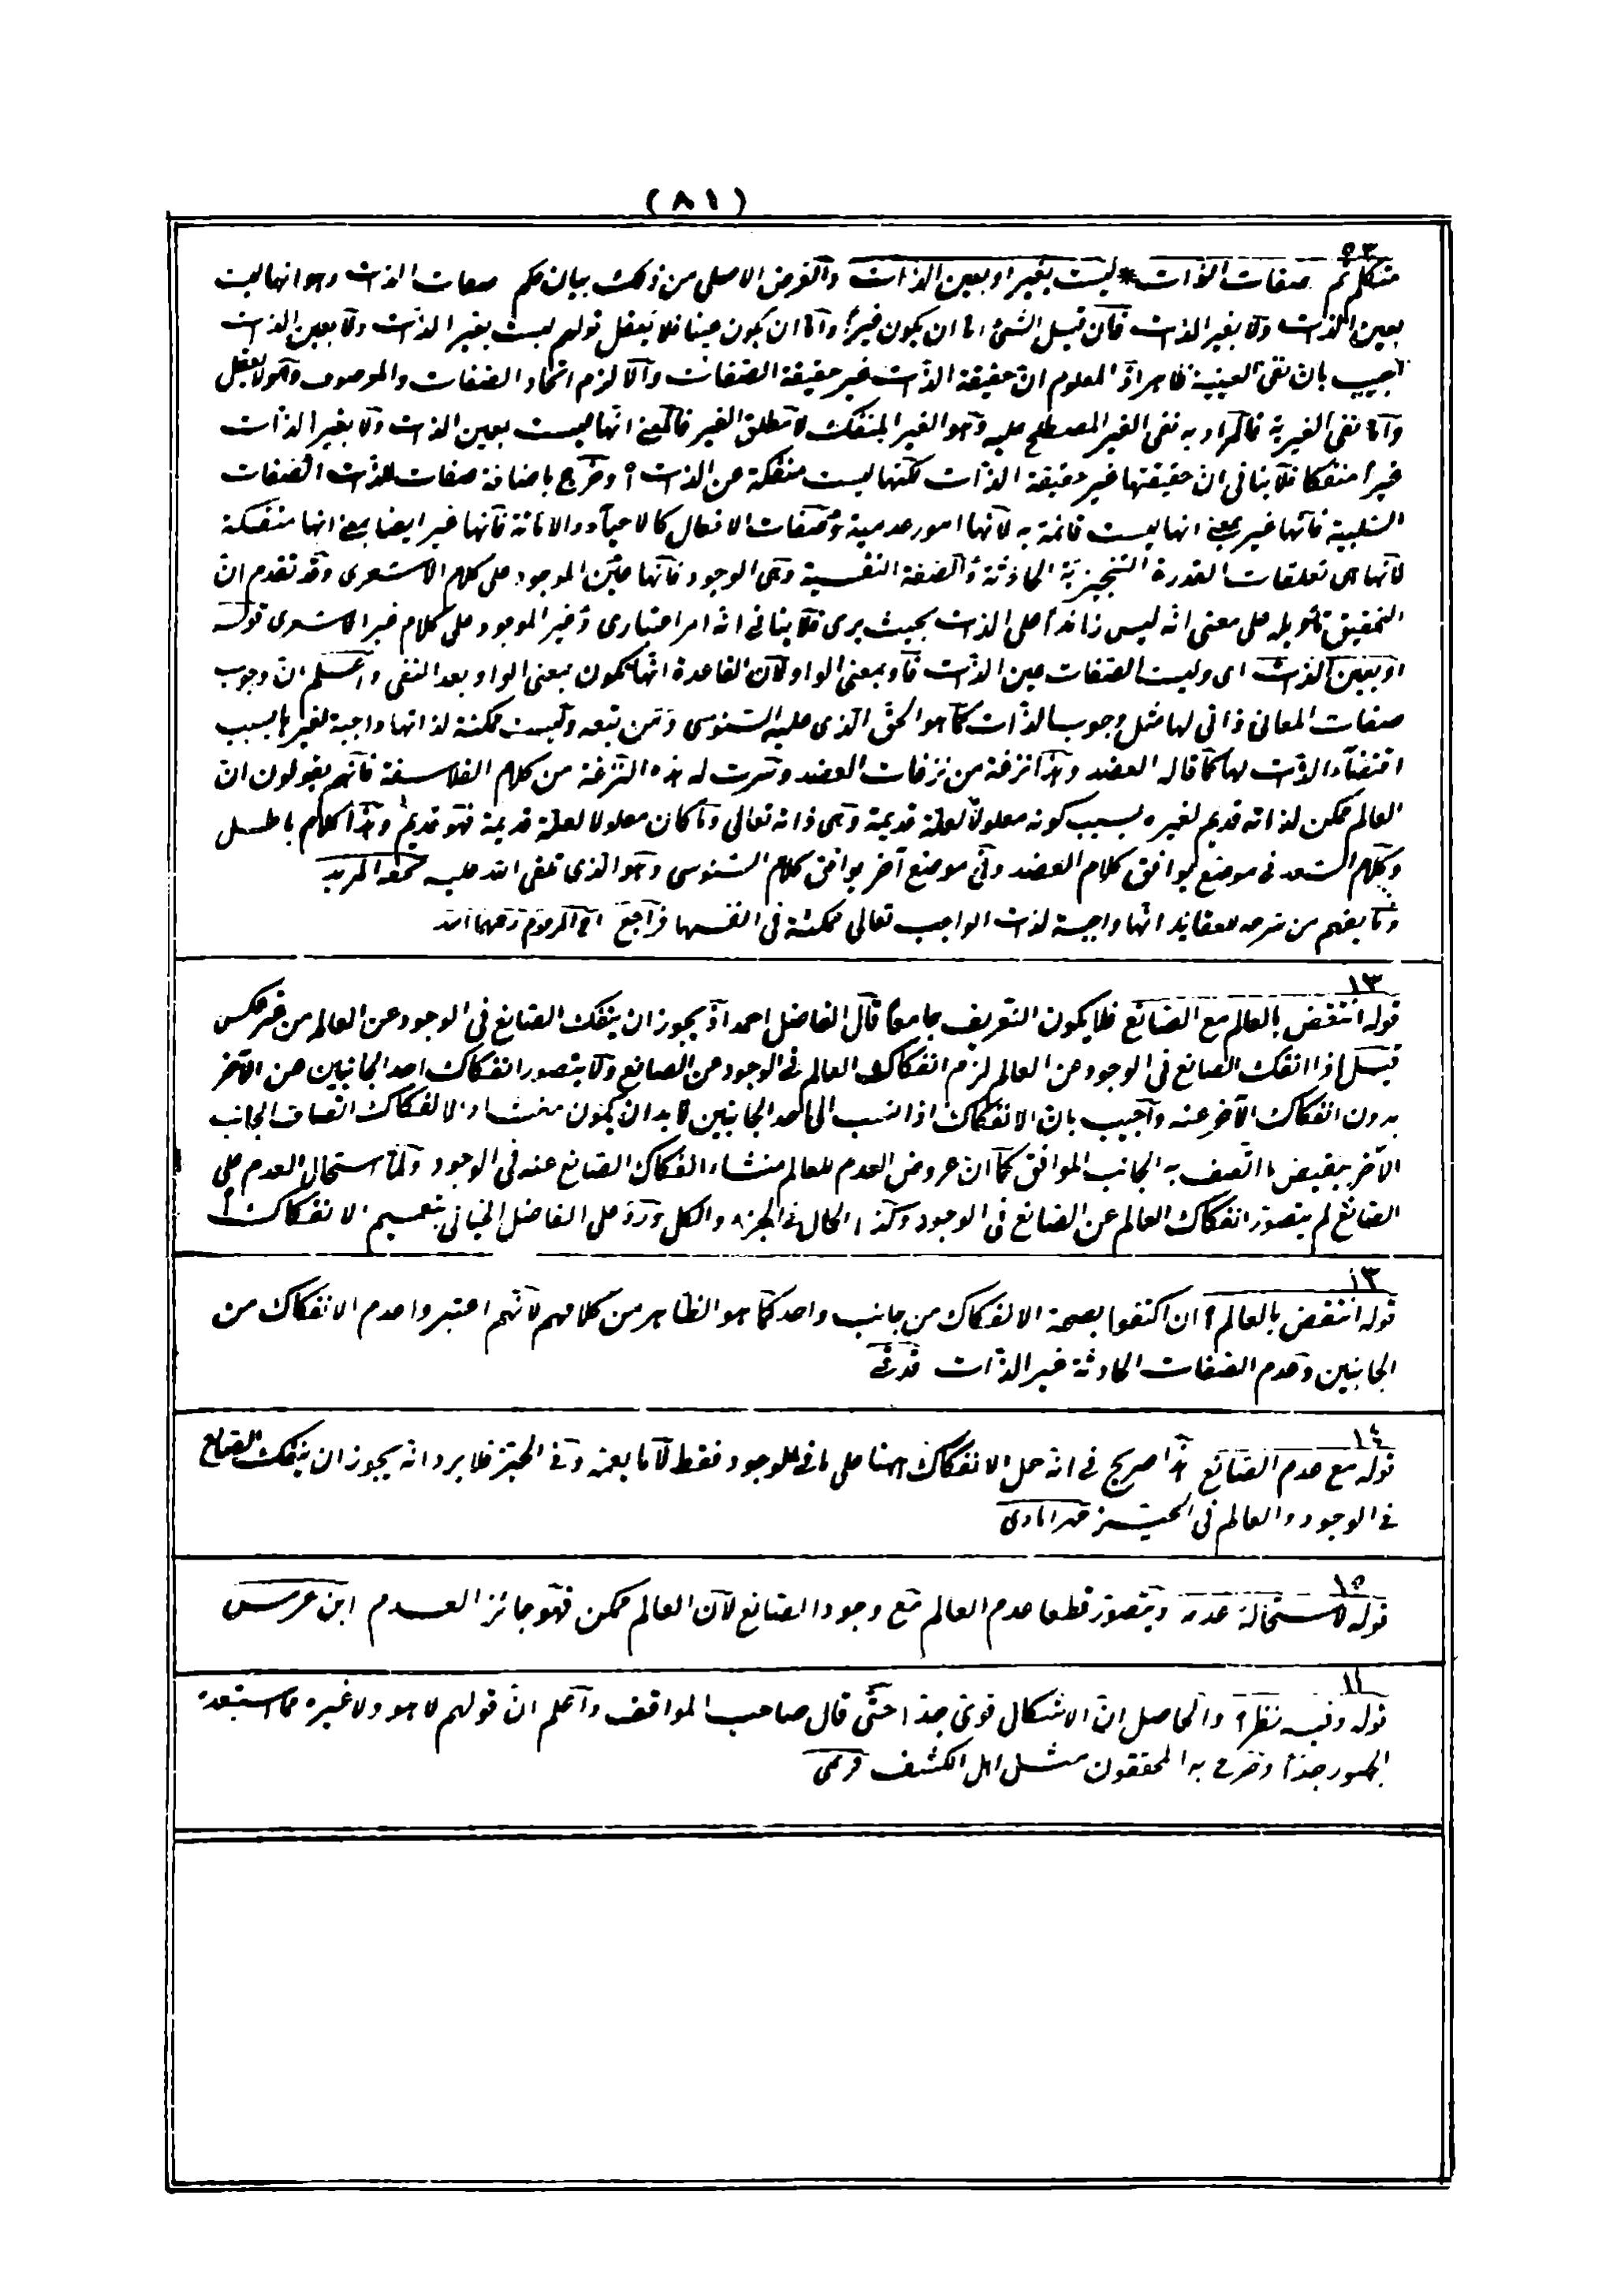 (٨١)
٥٣
متكلم ثم صفات الذات * ليست بغير او بعين الذات والغرض الاصلى من ذلك بيان حكم صفات الذات وهو انها ليست
بعين الذات ولا بغير الذات فان قيل الشئ اما ان يكون غيرا واما ان يكون عينا فلا يعقل قولهم ليست بغير الذات ولا بعين الذات
اجيب بان نفى العينية ظاهر اذ المعلوم ان حقيقة الذات غير حقيقة الصفات والا لزم اتحاد الصفات والموصوف وهو لا يعقل
واما نفى الغيرية فالمراد به نفى الغير المصطلح عليه وهو الغير المنفك لا مطلق الغير فالمعنى انها ليست بعين الذات ولا بغير الذات
غيرا منفكا فلا ينافى ان حقيقتها غير حقيقة الذات لكنها ليست منفكة عن الذات وخرج باضافة صفات للذات الصفات
السلبية فانها غير بمعنى انها ليست قائمة به لانها امور عدمية وصفات الافعال كالاحياء والاماتة فانها غير ايضا بمعنى انها منفكة
لانها هى تعلقات القدرة التنجيزية الحادثة والصفة النفسية وهى الوجود فانها عين الموجود على كلام الاشعرى وقد تقدم ان
التحقيق تأويله على معنى انه ليس زائدا على الذات بحيث يرى فلا ينافى انه امر اعتبارى وغير الموجود على كلام غير الاشعرى قوله
او بعين الذات اى وليست الصفات عين الذات فأو بمعنى الواو لان القاعدة انها تكون بمعنى الواو بعد النفى واعلم ان وجوب
صفات المعانى ذاتى لها مثل وجوب الذات كما هو الحق الذى عليه السنوسى ومن تبعه وليست ممكنة لذاتها واجبة لغيرها بسبب
اقتضاء الذات لها كما قاله العضد وهذا نزغة من نزغات العضد وسرت له هذه النزغة من كلام الفلاسفة فانهم يقولون ان
العالم ممكن لذاته قديم لغيره بسبب كونه معلولا لعلة قديمة وهى ذاته تعالى وما كان معلولا لعلة قديمة فهو قديم وهذا كلام باطل
وكلام السعد فى موضع يوافق كلام العضد وفى موضع آخر يوافق كلام السنوسى وهو الذى نلقى الله عليه تحفة المريد
وما يفهم من شرحه للعقايد انها واجبة لذات الواجب تعالى ممكنة فى انفسها فراجع
١٣
قوله انتقض بالعالم مع الصانع فلا يكون التعريف جامعا قال الفاضل احمد اذ يجوز ان ينفك الصانع فى الوجود عن العالم من غير عكس
قيل اذا انفك الصانع فى الوجود عن العالم لزم انفكاك العالم فى الوجود عن الصانع ولا يتصور انفكاك احد الجانبين عن الآخر
بدون انفكاك الآخر عنه واجيب بان الانفكاك اذا نسب الى احد الجانبين لا بد ان يكون منشاء الانفكاك اتصاف الجانب
الآخر بنقيض ما اتصف به الجانب الموافق كما ان عروض العدم للعالم منشاء انفكاك الصانع عنه فى الوجود ولما استحال العدم على
الصانع لم يتصور انفكاك العالم عن الصانع فى الوجود وكذا الحال فى الجزء والكل ورد على الفاضل الخيالى بتعميم الانفكاك
١٣
قوله انتقض بالعالم ان اكتفوا بصحة الانفكاك من جانب واحد كما هو الظاهر من كلامهم لانهم اعتبروا عدم الانفكاك من
الجانبين وعدم الصفات الحادثة غير الذات
١٤
قوله مع عدم الصانع هذا صريح فى انه حمل الانفكاك ههنا على ما فى الوجود فقط لا ما يعمه وفى الحيز فلا يرد انه يجوز ان ينفك الصانع
فى الوجود والعالم فى الحيز
١٥
قوله لاستحالة عدمه ويتصور قطعا عدم العالم مع وجود الصانع لان العالم ممكن فهو جائز العدم ابن عرس
قوله وفيه نظر والحاصل ان الاشكال قوى جدا حتى قال صاحب المواقف واعلم ان قولهم لا هو ولا غيره مما استبعده
الجمهور جدا وصرح به المحققون مثل اهل الكشف